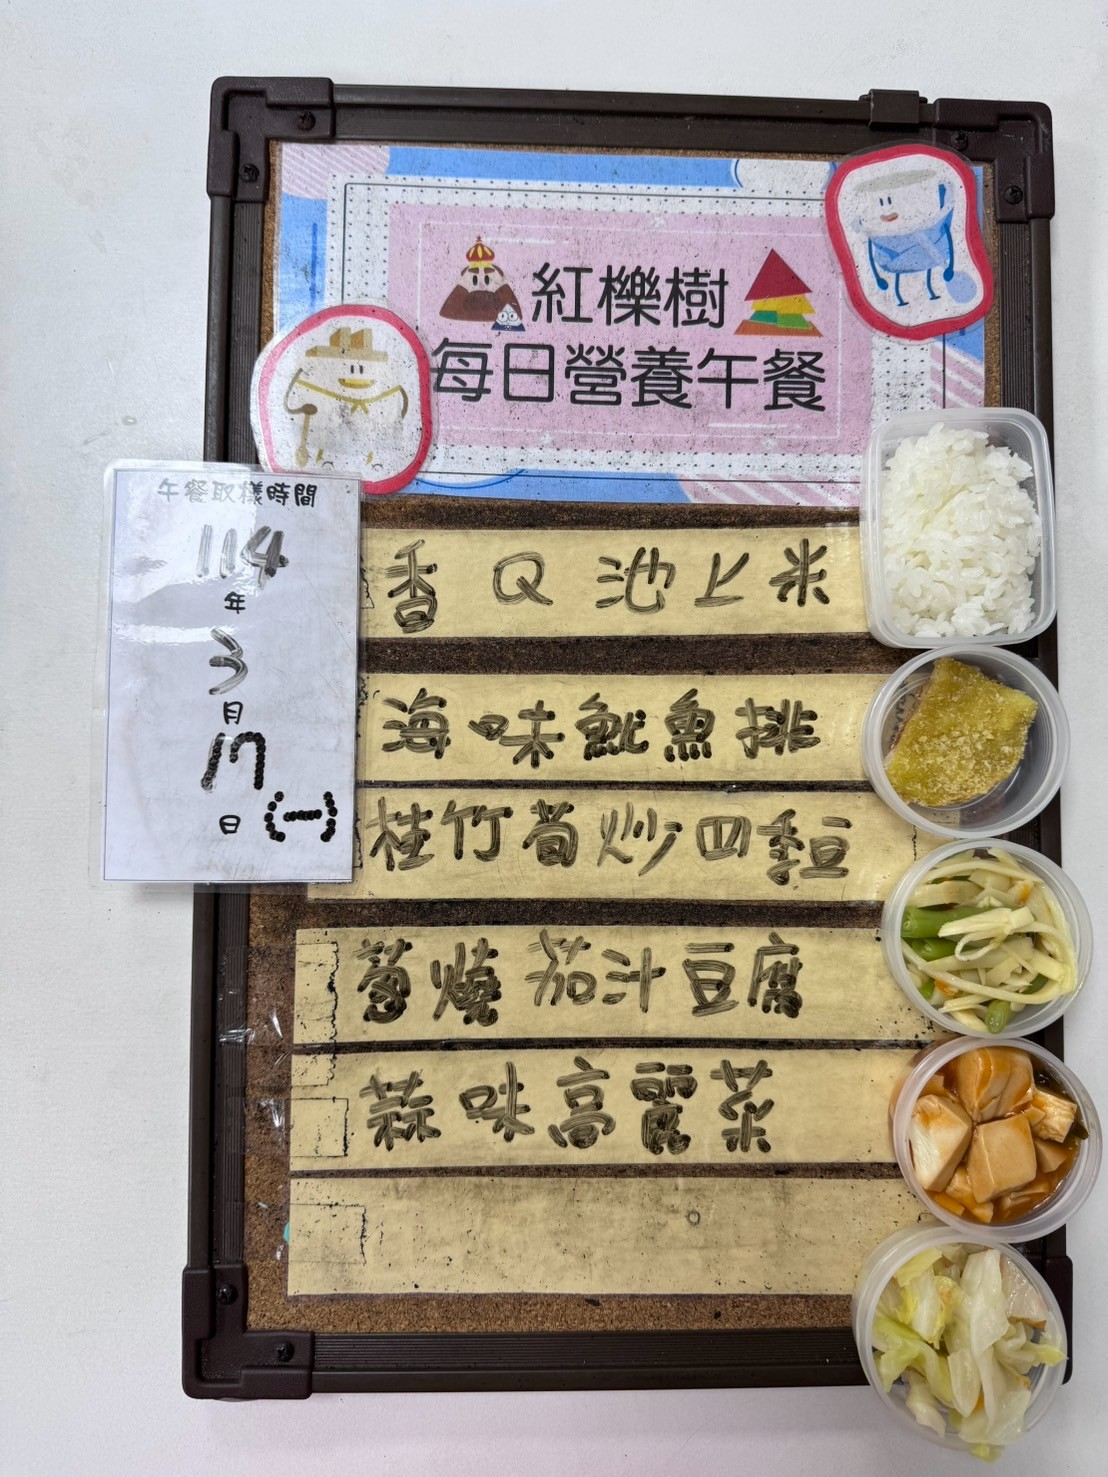 紅櫟樹
每日營養午餐
午餐取樣時間
114
年
3
月
17
日(一)
香Q池上米
海味魷魚排
桂竹筍炒四季豆
蔥燒茄汁豆腐
蒜味高麗菜